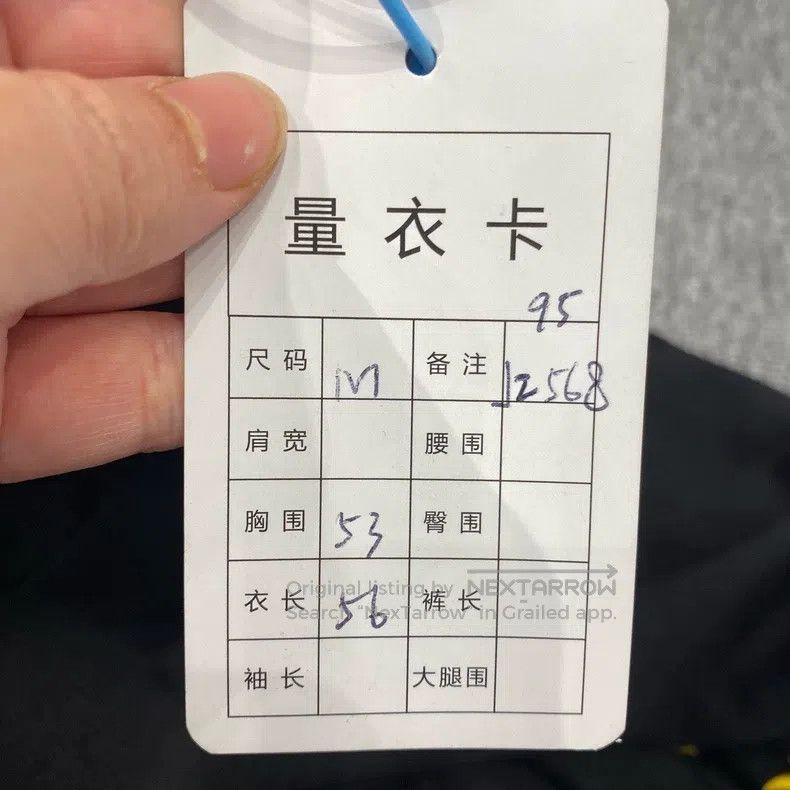 量衣卡
95
尺码 M 备注 J2568
肩宽 腰围
胸围 53 臀围
Original listing by NEXTARROW
衣长 56 裤长 -
Search "NexTarrow" in Grailed app.
袖长 大腿围